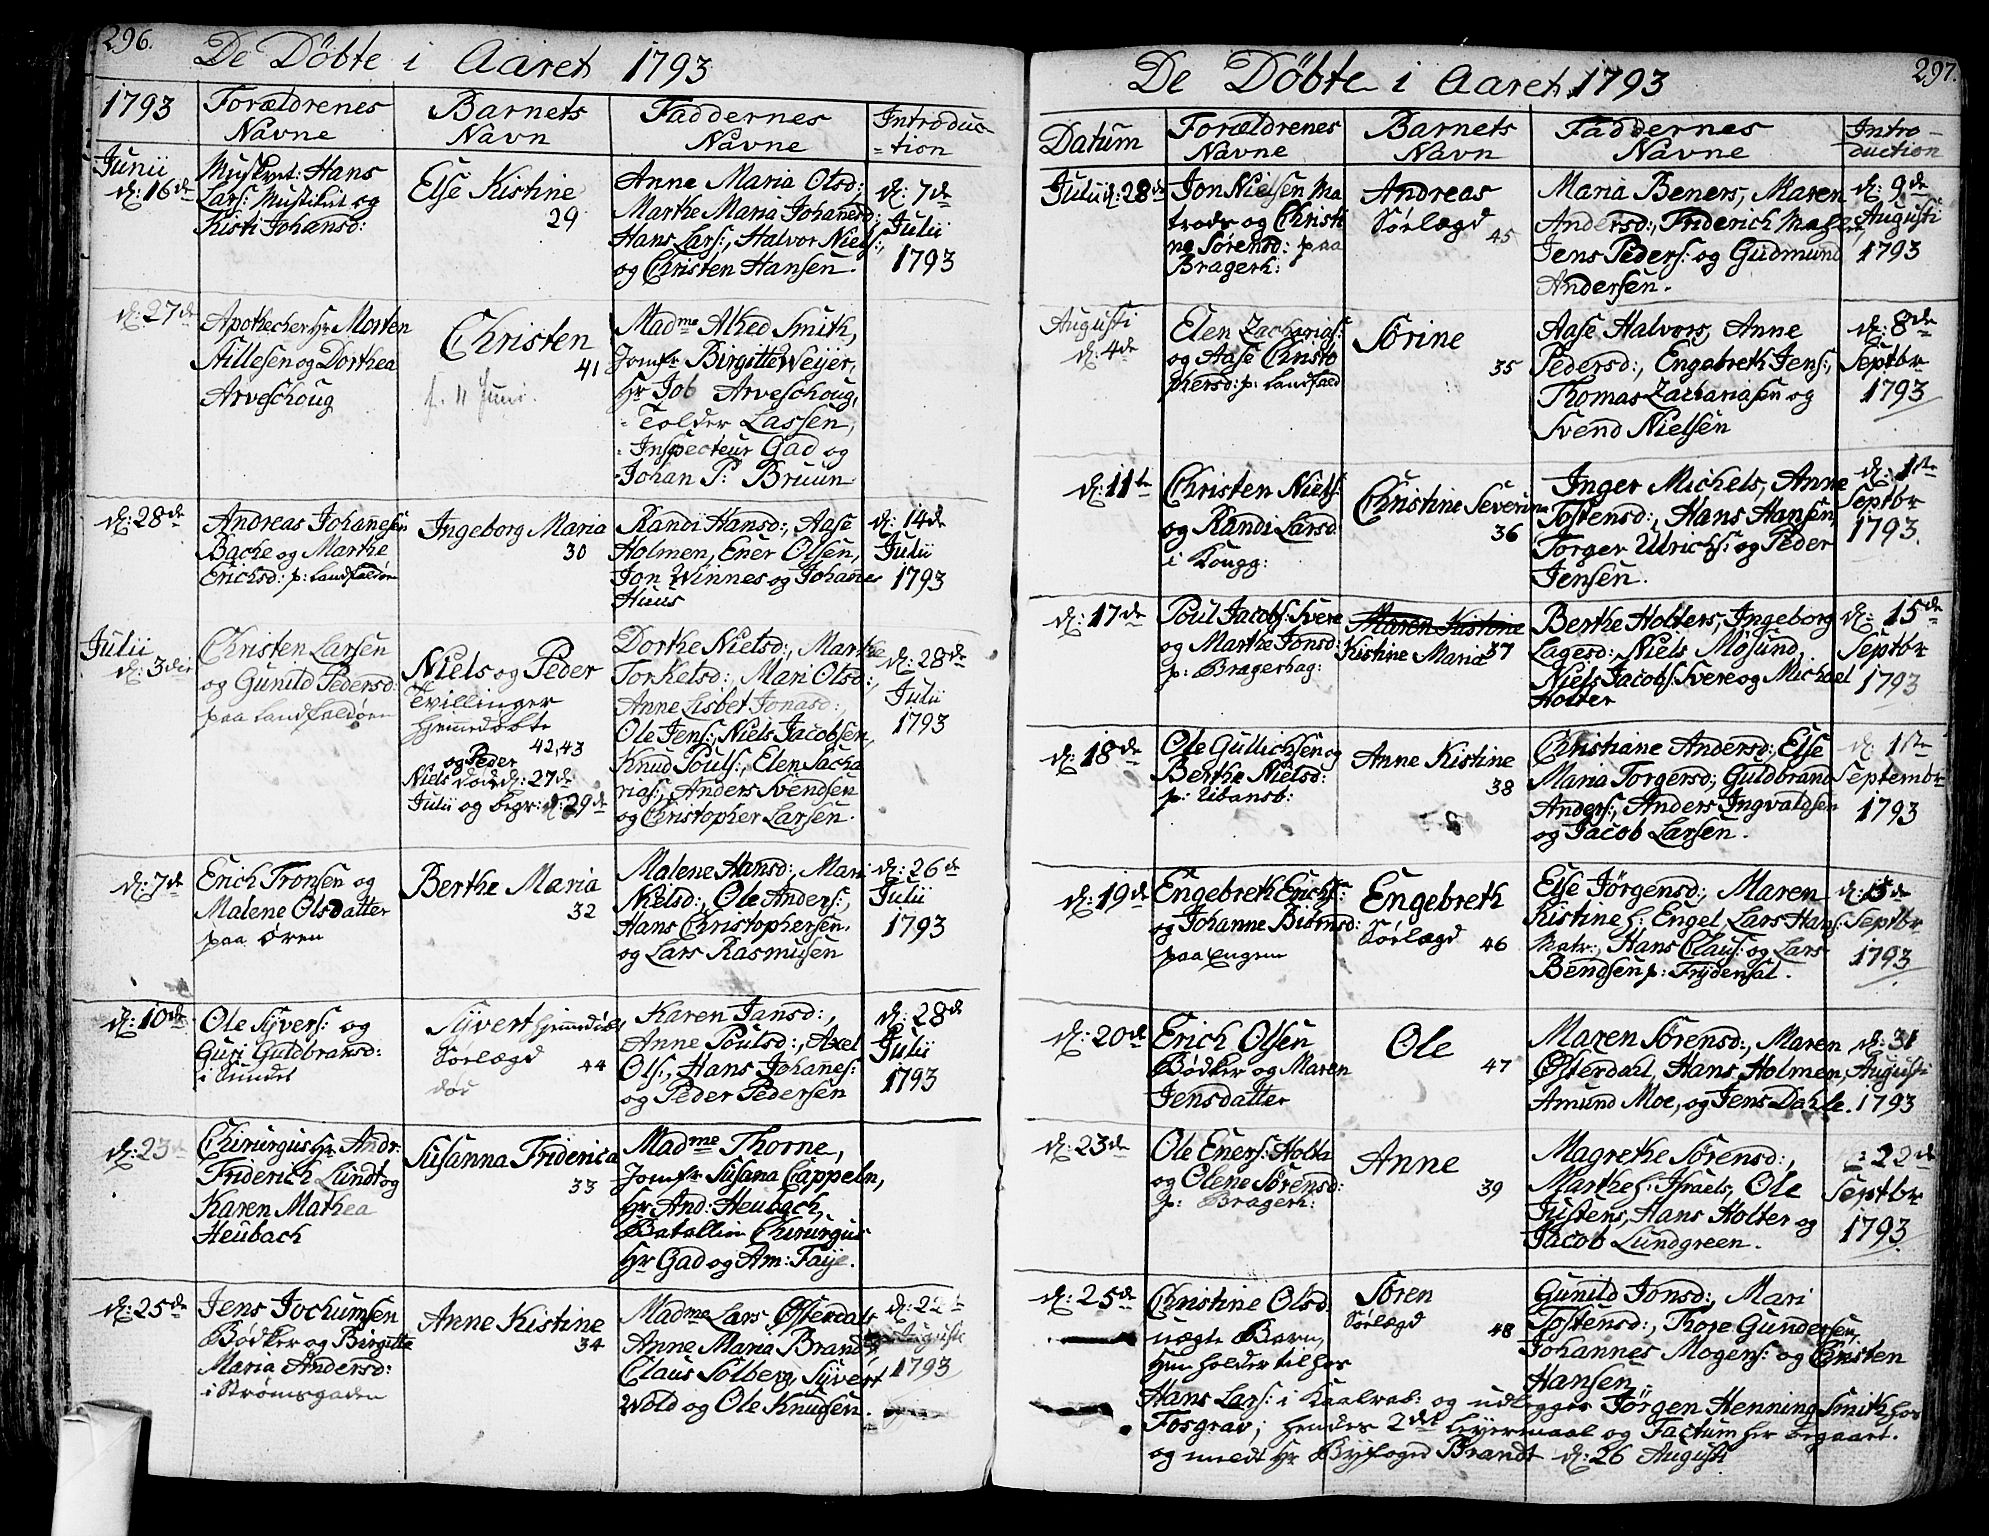 296.
De Döbte i Aaret 1793
1793
Forældrenes
Navne
Barnets
Navn
Faddernes
Navne
Introduc
=tion
Junii
d: 16de
Muskret: Hans
Lars: og
Kisti Johansd:
Else Kistine
29
Anne Maria Olsd:
Marthe Maria Johanesd:
Hans Lars:, Halvor Niels:,
og Christen Hansen.
d: 7de
Julii
1793
d: 27de
Apothecher Hr Morten
Stillesen og Dorthea
Arveschoug
Christen
41
f. 11 Juni.
Madme Alhed Smith,
Jomfr Birgitte Weijer,
Hr Job Arveschoug,
Tolder Lassen,
Inspecteur Gad og
Johan P: Bruun
d: 28de
Andreas Johannesen
Bache og Marthe
Erichsd: p: Landfaldøen
Ingeborg Maria
30
Randi Hansd:, Aase
Holmen, Ener Olsen,
Jon Winnes og Johannes
Huus
d: 14de
Julii
1793
Julii
d: 3die
Christen Larsen
og Gunild Pedersd:
paa Landfaldøen
Niels og Peder
Tvillinger
Hjemedøbte
42,43
og Peder
Niels døde d: 27de
Julii og begr: d: 29de
Dorthe Nielsd:, Marthe
Torkelsd:, Mari Olsd:,
Anne Lisbet Jonasd:,
Ole Jens:, Niels Jacobsen,
Knud Pouls:, Elen Sacha
rias:, Anders Svendsen
og Christopher Larsen.
d: 28de
Julii
1793
d: 7de
Erich Tronsen og
Malene Olsdatter
paa Øren
Berthe Maria
32
Malene Hansd:, Mari
Nielsd:, Ole Anders:,
Hans Christophersen.
og Lars Rasmusen
d: 26de
Julii
1793
d: 10de
Ole Syvers: og
Guri Guldbransd:
i Sundet
Syvert
Sørlægd
44
død
Karen Jansd:,
Anne Poulsd:, Axel
Ols:, Hans Johannes:
og Peder Pedersen
d: 28de
Julii
1793
d: 23de
Chirurgus Hr Andr:
Friderich Lundt og
Karen Mathea
Heubach
Susanna Friderica
33
Madme Thorne,
Jomfr Susana Cappeln,
Hr And: Heubach,
Batallion Chirurgus
Hr Gad og Am: Faije.
d: 25de
Jens Jochumsen
Bødker og Birgitte
Maria Andersd:
i Strømsgaden
Anne Kistine
34
Madme Lars Østerdals
Anne Maria Brandt,
Claus Solberg, Syvert
Wold og Ole Knudsen.
d: 22de
Augusti
1793
297.
De Döbte i Aaret 1793
Datum
Forældrenes
Navne
Barnets
Navn
Faddernes
Navne
Intro-
duction
Julii d: 28de
Jon Nielsen Ma
trods og Christi
ne Sørensd: paa
Bragerh:
Andreas
Sørlægd
45
Maria Beners, Maren
Andersd:, Friderich
Jens Peders: og Gudmund
Andersen.
d: 9de
Augusti
1793
Augusti
d: 4de
Elen Zacharias:
og Aase Christo
phersd: p: Landfald
Sørine
35
Aase Halvors, Anne
Pedersd:, Engebreth Jens:,
Thomas Zachariasen og
Svend Nielsen
d: 8de
Septbr
1793
d: 11te
Christen Niels:
og Randi Larsd:
i Kougg:
Christine Severine
36
Inger Michels, Anne
Tostensd:, Hans Hansen,
Torger Ulrichs: og Peder
Jensen.
d: 1ste
Septbr
1793.
d: 17de
Poul Jacobs: Svere
og Marthe Jonsd:
p: Bragerhag:
Maren Kistine
Kistine Maria
37
Berthe Holters, Ingeborg
Lagesd: Niels Mosund,
Niels Jacobs: Svere og Michael
Holter
d: 15de
Septbr
1793
d: 18de
Ole Gullichsen og
Berthe Nielsd:
p: Ubansb:
Anne Kistine
38
Christiane Andersd:, Else
Maria Torgersd:, Guldbrand
Anders:, Anders Ingvaldsen
og Jacob Larsen.
d: 1ste
Septembr
1793
d: 19de
Engebreth Erichs:
og Johanne Bistensd:
paa Engene
Engebreth
Sørlægd
46
Else Jörgensd:, Maren
Kistine h: Engel, Lars Hans:
Matr:, Hans Claus: og Lars
Bendsen p: Frydensal.
d: 15de
Septbr
1793
d: 20de
Erich Olsen
Bødker og Maren
Jensdatter
Ole
47
Maren Sörensd:, Maren
Østerdahl, Hans Holmen,
Amund Moe, og Jens Dahle.
d: 31
Augusti
1793
d: 23de
Ole Eners: Holta
og Olene Sørensd:
p: Bragerh:
Anne
39
Magrethe Sörensd:,
Marthe h: Israels, Ole
Justens, Hans Holter og
Jacob Lundgreen.
d: 22de
Septbr
1793
d: 25de
Christine Olsd:
uægte Barn,
Hun holder til hos
Søren
Sørlægd
48
Gunild Jonsd:, Mari
Tostensd:, Thore Gundersen,
Johannes Mogens: og Christen
Hansen.
Hans Lars: i Kaalrab: og udlægger Jörgen Henning Smith hos
Fosgrav; hendes 2det Leyermaal og Factum her begaaet.
og meldt Hr Byfoged Brandt d: 26 Augusti